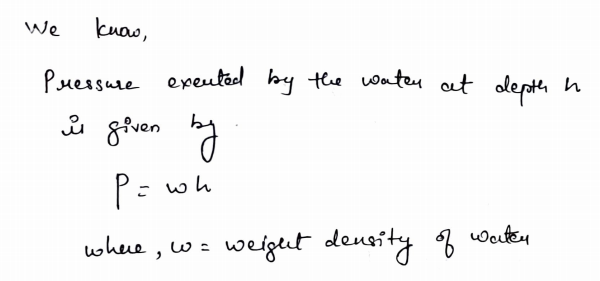 We know,
Pressure exerted by the water at depth h
is given by
P = wh
where, w = weight density of water